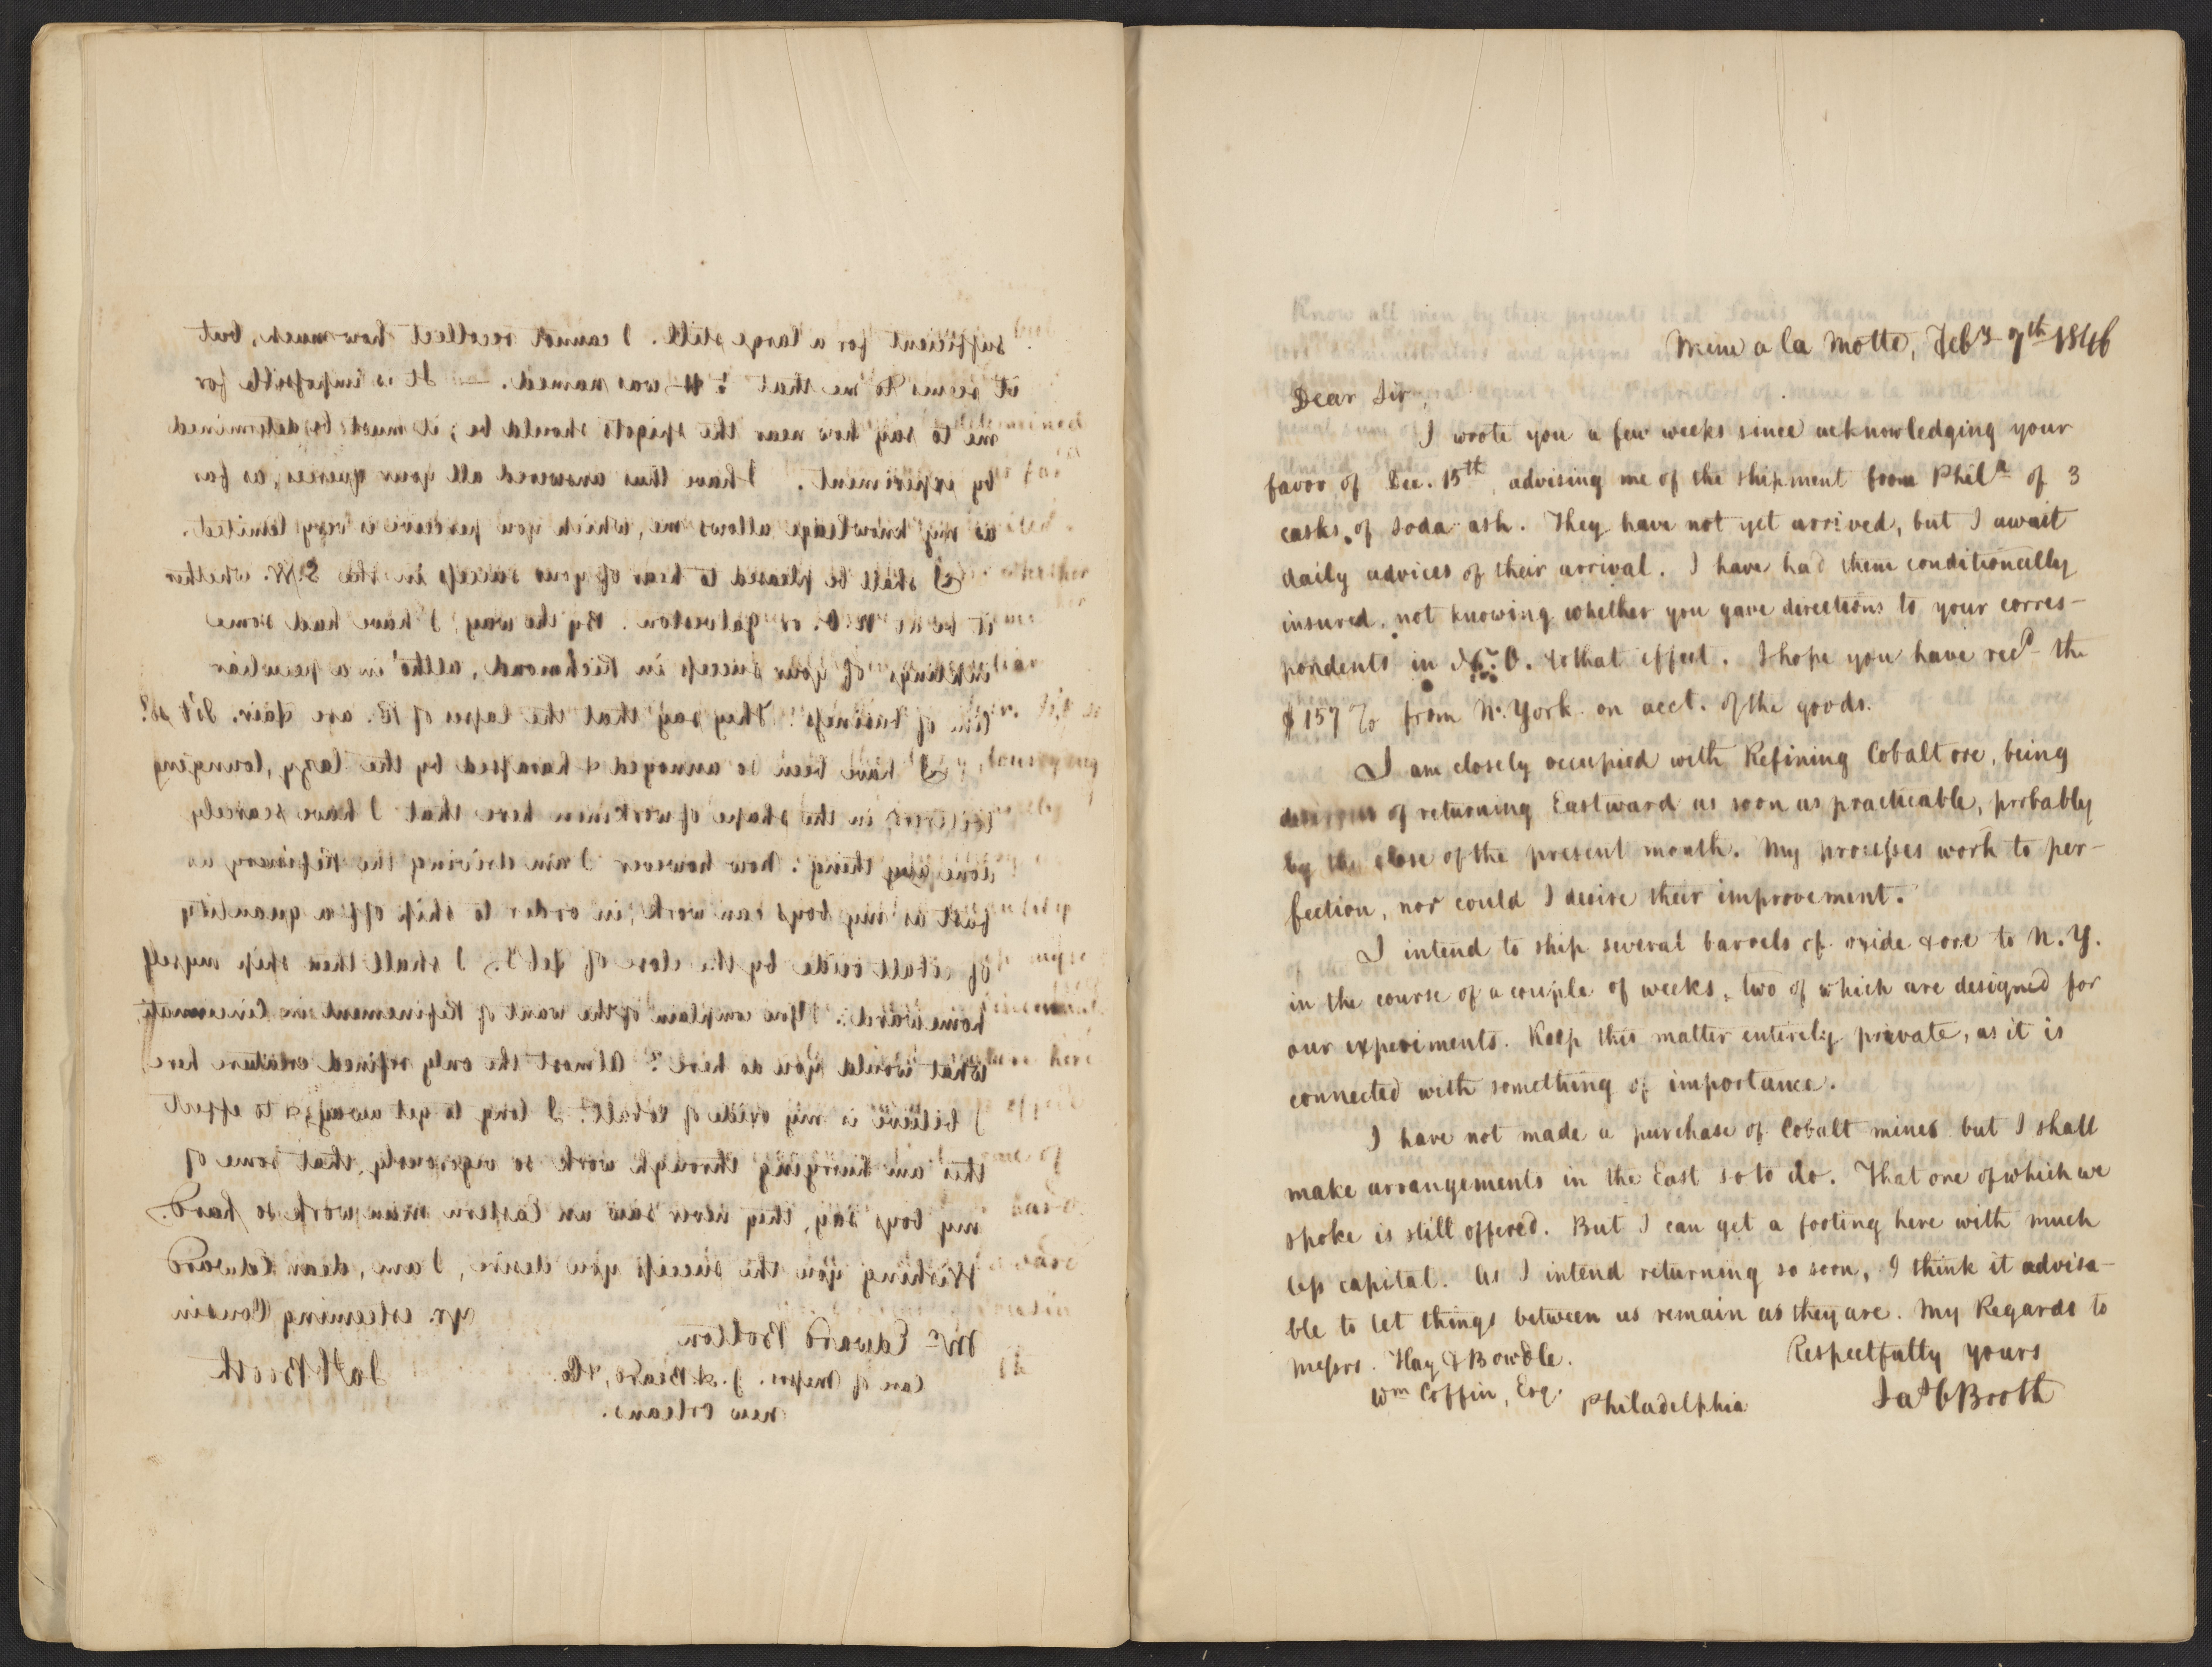 sufficient for a large still. I cannot recollect how much, but,
it seems to me that was named. — It is impossible for
me to say how near the spigots should be; it must be determined
by experiment. I have thus answered all your queries, as far
as my knowledge allows me, which you perceive is very limited.
I shall be pleased to hear of your success in the S.W. whether
it be at N.O. or Galveston. By the way, I have had some
inklings of your success in Richmond, altho' in a peculiar
line of business. They say that the lapses of R. are fair. Is't so?
I have been so annoyed & harassed by the lazy, lounging
loiterers, in the shape of workmen here that I have scarcely
done any thing. Now however I am driving the Refinery as
fast as my boys can work, in order to ship off a quantity
of cobalt oxide by the close of Feby. I shall then ship myself
homeward. You complain of the want of Refinement in Cincinnati,
what would you do here? Almost the only refined creature here
I believe is my oxide of cobalt. I long to get away, & to effect
this am hurrying through work so vigorously, that some of
my boys say, they never saw an Eastern man work so hard.
Wishing you the success you desire, I am, dear Edward
yr. esteeming Cousin
Mr. Edward Bolton
Jas C Booth
Care of Messrs. J. & Beard, & Co.
New Orleans.
Mine a la Motte, Feby 7th 1846
Dear Sir,
I wrote you a few weeks since acknowledging your
favor of Dec. 15th, advising me of the shipment from Phila of 3
casks of soda ash. They have not yet arrived, but I await
daily advices of their arrival. I have had them conditionally
insured, not knowing whether you gave directions to your corres-
pondents in N. O. to that effect. I hope you have recd the
$157 from N. York on acct. of the goods.
I am closely occupied with Refining Cobalt ore, being
desirous of returning Eastward as soon as practicable, probably
by the close of the present month. My processes work to per-
fection, nor could I desire their improvement.
I intend to ship several barrels of oxide & ore to N. Y.
in the course of a couple of weeks, two of which are designed for
our experiments. Keep this matter entirely private, as it is
connected with something of importance.
I have not made a purchase of Cobalt mines but I shall
make arrangements in the East so to do. That one of which we
spoke is still offered. But I can get a footing here with much
less capital. As I intend returning so soon, I think it advisa-
ble to let things between us remain as they are. My Regards to
Messrs. Hay & Bowdle.
Respectfully yours
Wm Coffin, Esq. Philadelphia
Jas C Booth